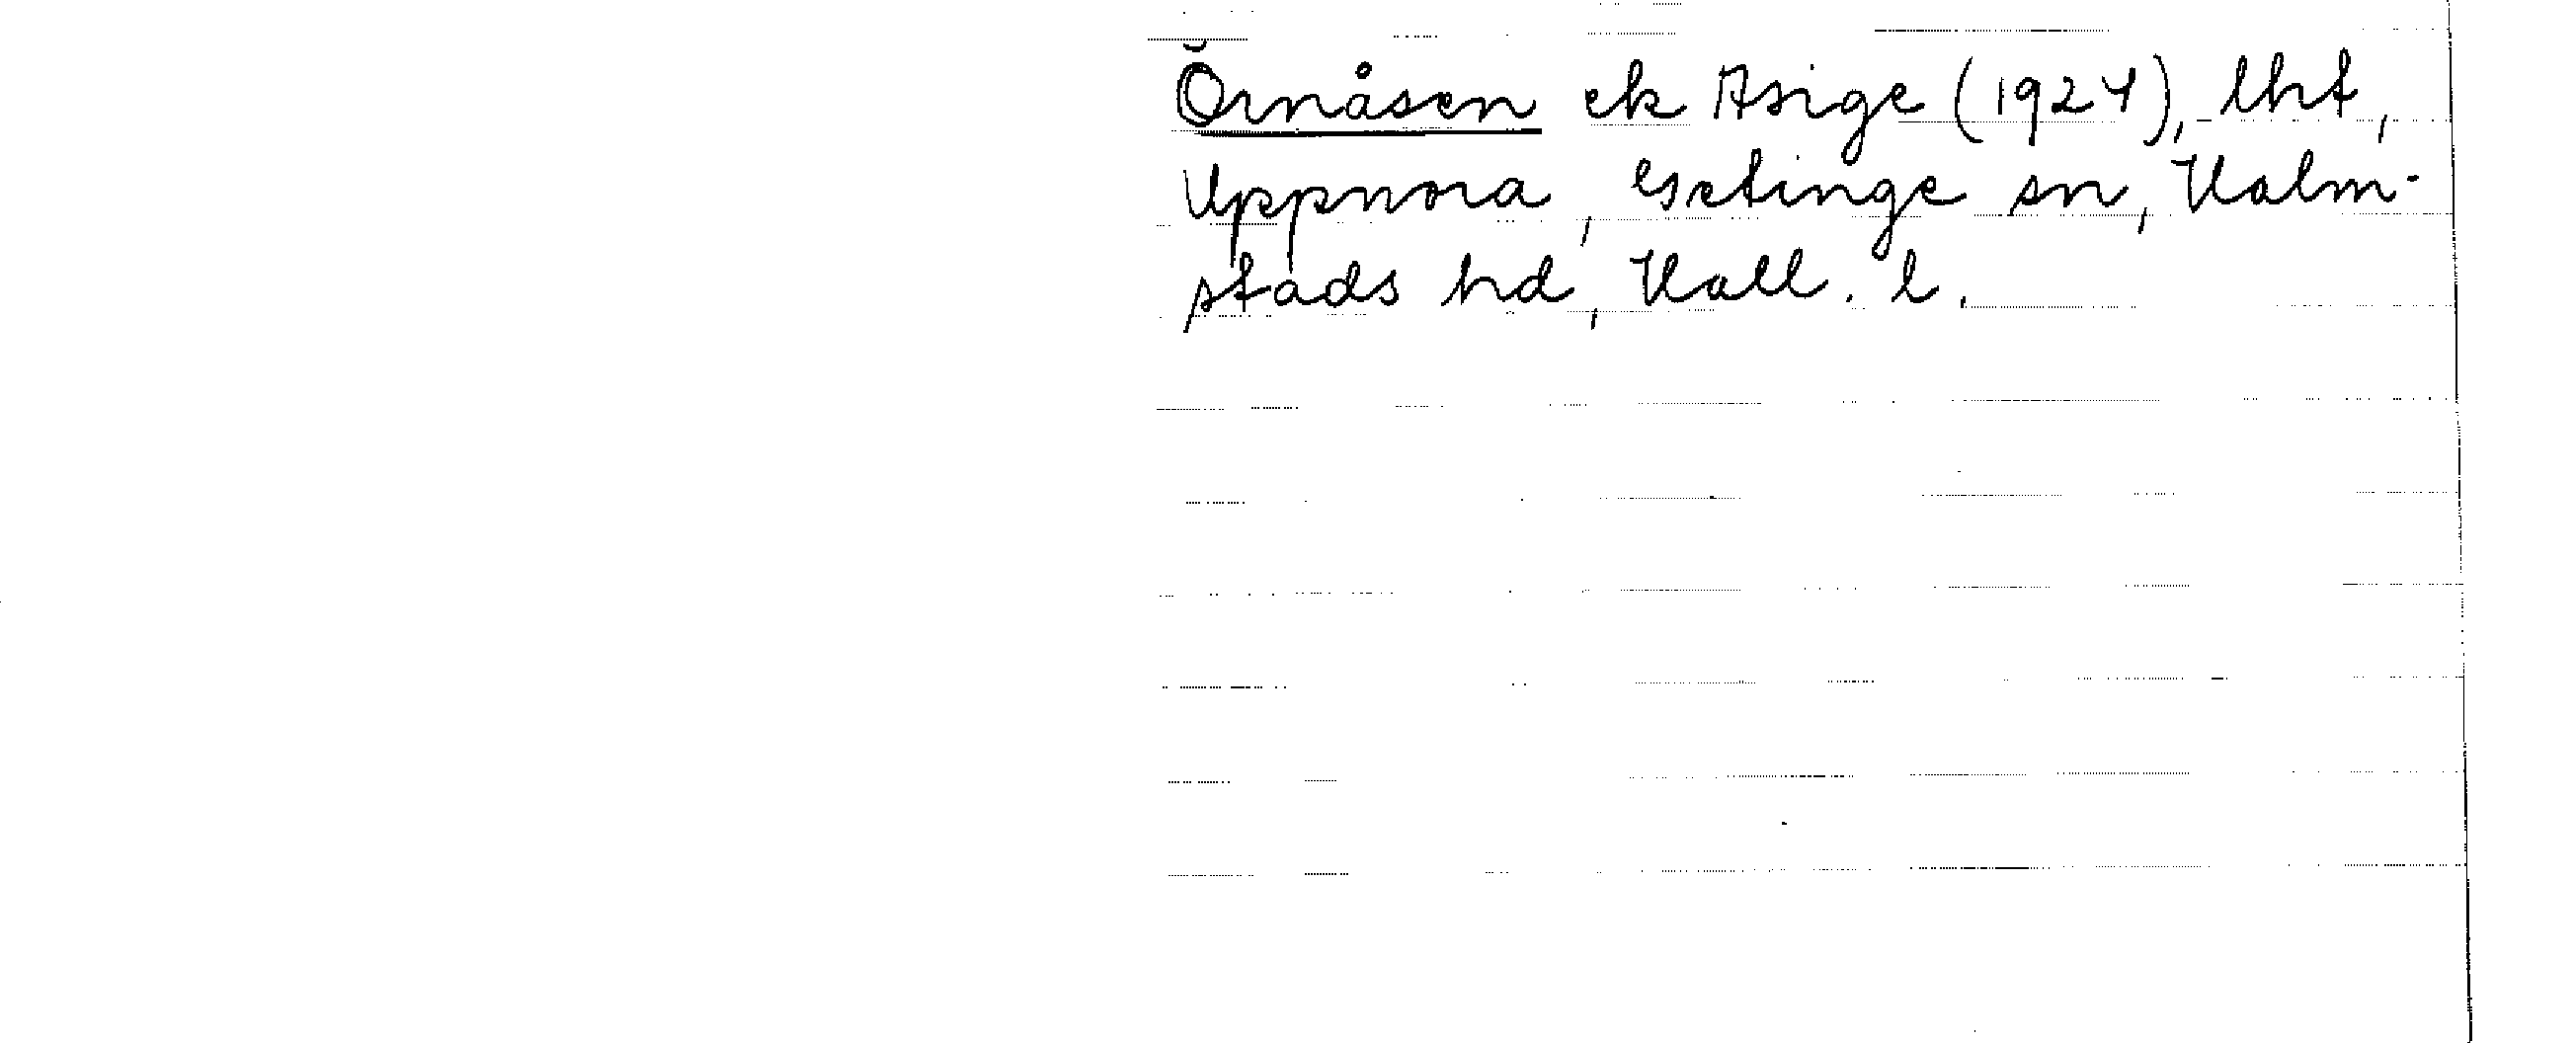 Örnåsen ek Asige (1924), lht,
Uppnora, Getinge sn, Halm-
stads hd, Hall. l.